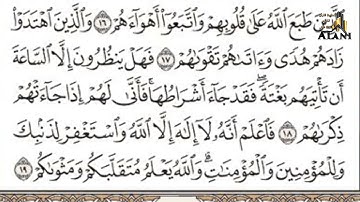 ATAIM
طَبَعَ اللَّهُ عَلَىٰ قُلُوبِهِمْ وَاتَّبَعُوا أَهْوَاءَهُمْ ١٦ وَالَّذِينَ اهْتَدَوْا
زَادَهُمْ هُدًى وَءَاتَىٰهُمْ تَقْوَىٰهُمْ ١٧ فَهَلْ يَنظُرُونَ إِلَّا السَّاعَةَ
أَن تَأْتِيَهُم بَغْتَةً فَقَدْ جَاءَ أَشْرَاطُهَا فَأَنَّىٰ لَهُمْ إِذَا جَاءَتْهُمْ
ذِكْرَىٰهُمْ ١٨ فَاعْلَمْ أَنَّهُ لَا إِلَٰهَ إِلَّا اللَّهُ وَاسْتَغْفِرْ لِذَنبِكَ
وَلِلْمُؤْمِنِينَ وَالْمُؤْمِنَاتِ وَاللَّهُ يَعْلَمُ مُتَقَلَّبَكُمْ وَمَثْوَىٰكُمْ ١٩